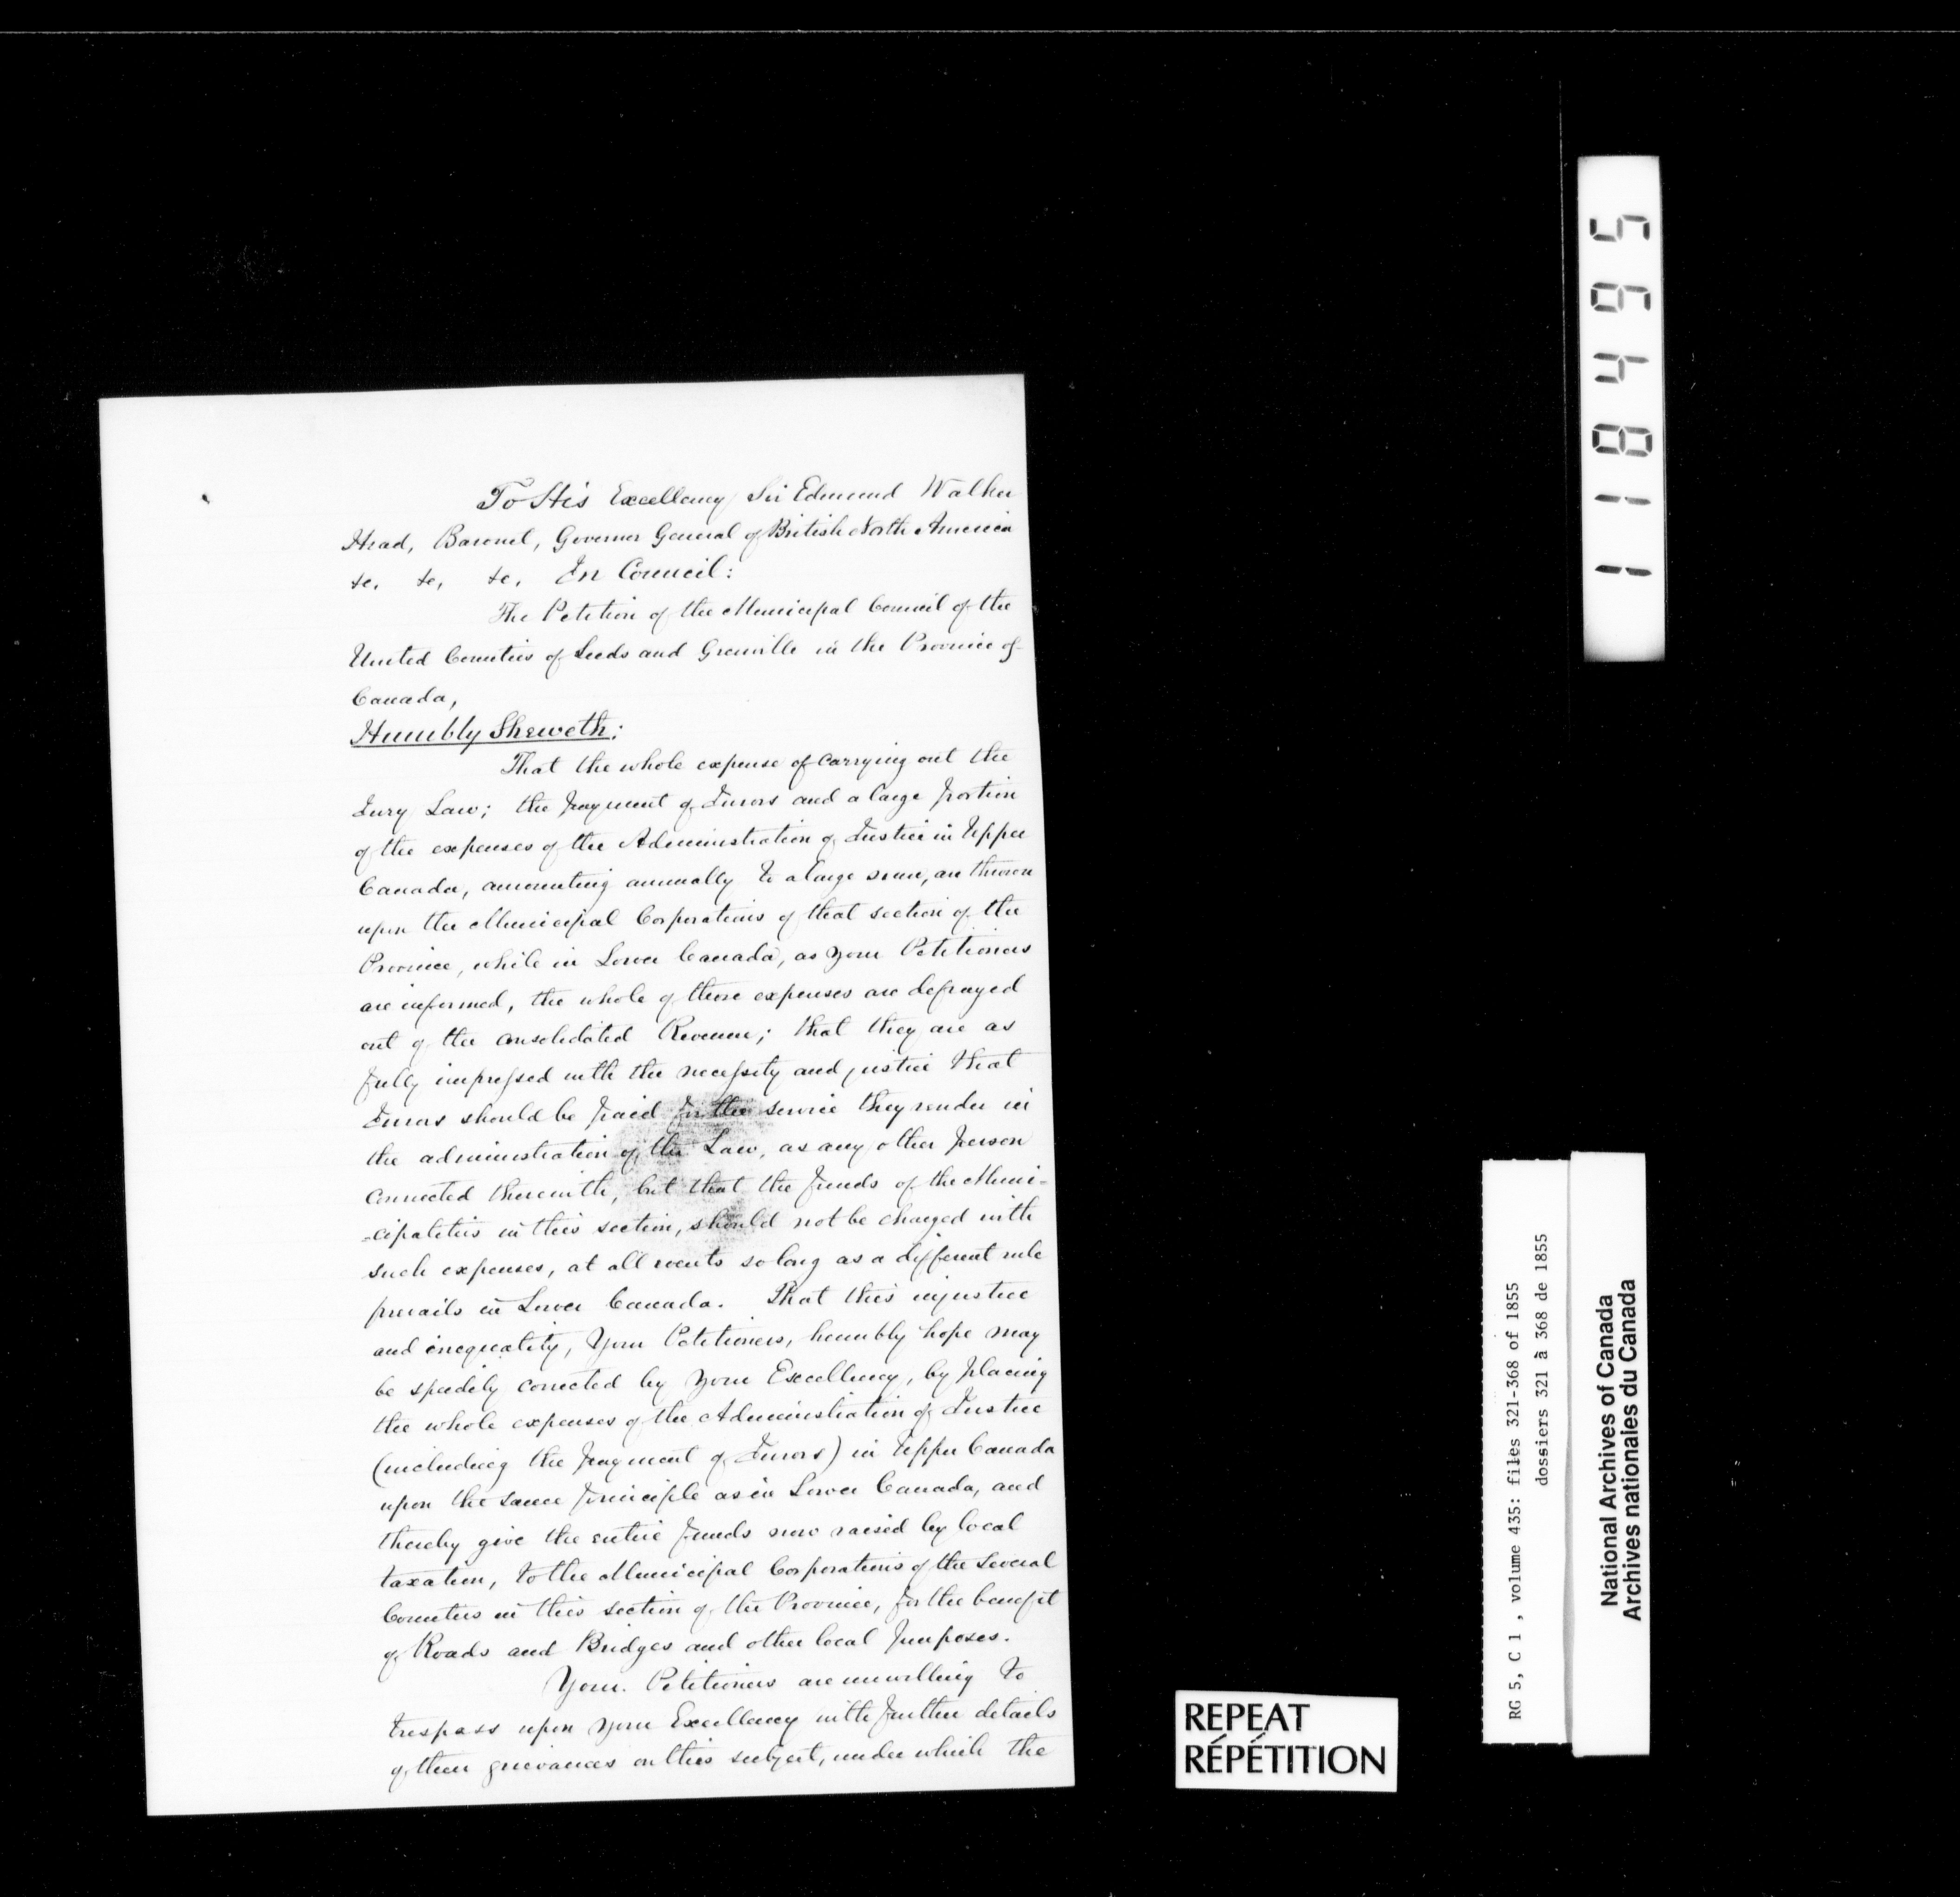 To His Excellency Sir Edmund Walker
Head, Baronet, Governor General of British North America
&c. &c, &c, In Council:
The Petition of the Municipal Council of the
United Counties of Leeds and Grenville in the Province of
Canada,
Humbly Sheweth:
That the whole expense of carrying out the
Jury Law; the payment of Jurors and a large portion
of the expenses of the Administration of Justice in Upper
Canada, amounting annually to a large sum, are thrown
upon the Municipal Corporations of that section of the
Province, while in Lower Canada, as your Petitioners
are informed, the whole of those expenses are defrayed
out of the Consolidated Revenue; that they are as
fully impressed with the necessity and justice that
Jurors should be paid for the service they render in
the administration of the Law, as any other person
connected therewith, but that the funds of the Muni=
=cipalities in this section, should not be charged with
such expenses, at all events so long as a different rule
prevails in Lower Canada. That this injustice
and inequality, Your Petitioners, humbly hope may
be speedily corrected by Your Excellency, by placing
the whole expenses of the Administration of Justice
(including the payment of Jurors) in Upper Canada
upon the same principle as in Lower Canada, and
thereby give the entire funds now raised by local
taxation, to the Municipal Corporations of the Several
Counties in this section of the Province, for the benefit
of Roads and Bridges and other local purposes.
Your Petitioners are unwilling to
trespass upon your Excellency with further details
of their grievances on this subject, under which the
REPEAT
RÉPÉTITION
118495
RG 5, C 1 , volume 435: files 321-368 of 1855
dossiers 321 à 368 de 1855
National Archives of Canada
Archives nationales du Canada